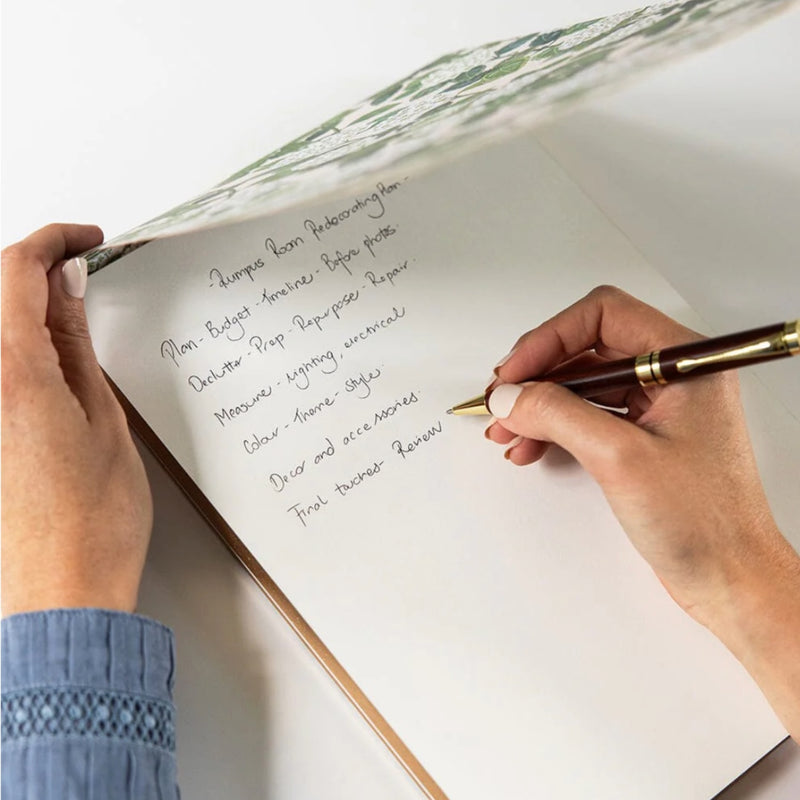 -Rumpus Room Redecorating Plan-
Plan- Budget -Timeline- Before photos.
Declutter -Prep - Repurpose - Repair.
Measure - Lighting, electrical
Colour - Theme - Style.
Decor and accessories.
Final touches- Review